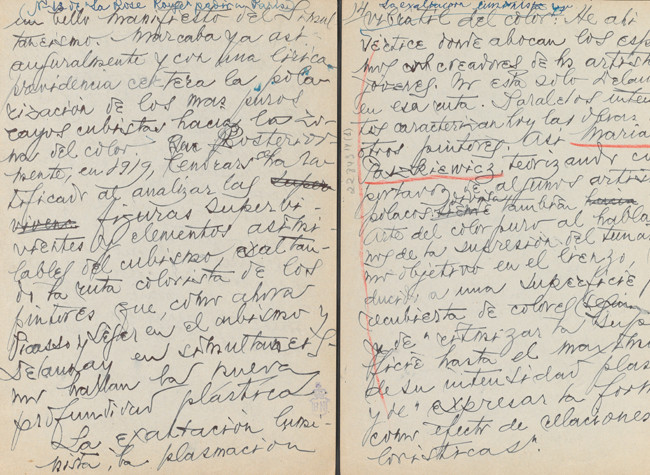 un bello manifiesto del Simul
taneismo. Marcaba ya así
auguralmente y con una lírica
providencia certera la pola
rización de los mas puros
rayos cubistas hacia la zo-
na del color. Que Posterior
mente, en 1919, ha ra
tificado al analizar las
figuras supervi-
vientes y elementos asimi-
lables del cubismo, exaltan
do la ruta colorista de los
pintores que, como ahora
Picasso y Léger en el cubismo y
Delaunay en simultaneis-
mo hallan la nueva
profundidad plástica
La exaltación lumi-
nista, la plasmación
14
vibratil del color: He ahí
vértice donde abocan los
creadores de los artis
jóvenes. No está solo Delau
en esa ruta. Paralelos inten
tos caracterizan hoy las obras
otros pintores. Así Maria
teorizando
de algunos artis
polacos también
arte del color puro al habla
nos de la supresion del
mo objetivo en el lienzo,
a una superficie
recubierta de colores
y de "ritmizar la sup
ficie hasta el maximo
de su intensidad plas
y de "expresar la form
como efecto de relaciones
loristicas".
223451(2)